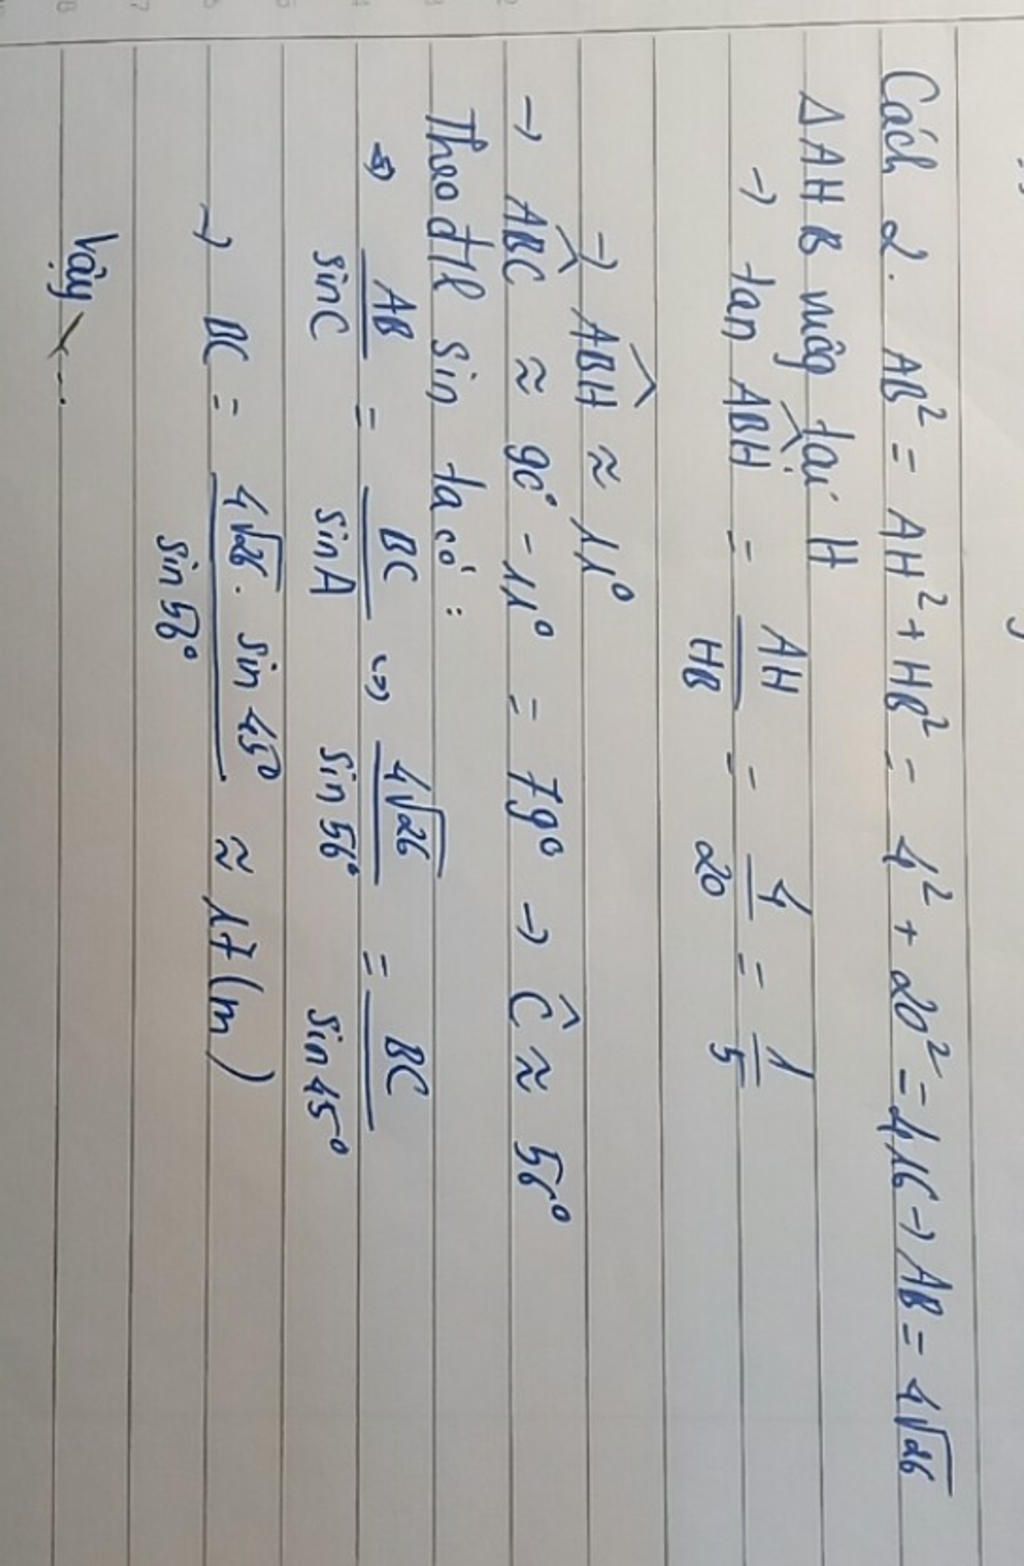 Cách 2. AB² = AH² + HB² = 4² + 20² = 416 → AB = 4√26
Δ AHB vuông tại H
→ tan ABH = AH/HB = 4/20 = 1/5
→ ABH ≈ 11°
→ ABC ≈ 90° - 11° = 79° → Ĉ ≈ 56°
Theo đlí sin ta có:
⇒ AB/sinC = BC/sinA ↔ 4√26/sin56° = BC/sin45°
→ BC = 4√26 . sin45°/sin56° ≈ 17(m)
Vậy ...